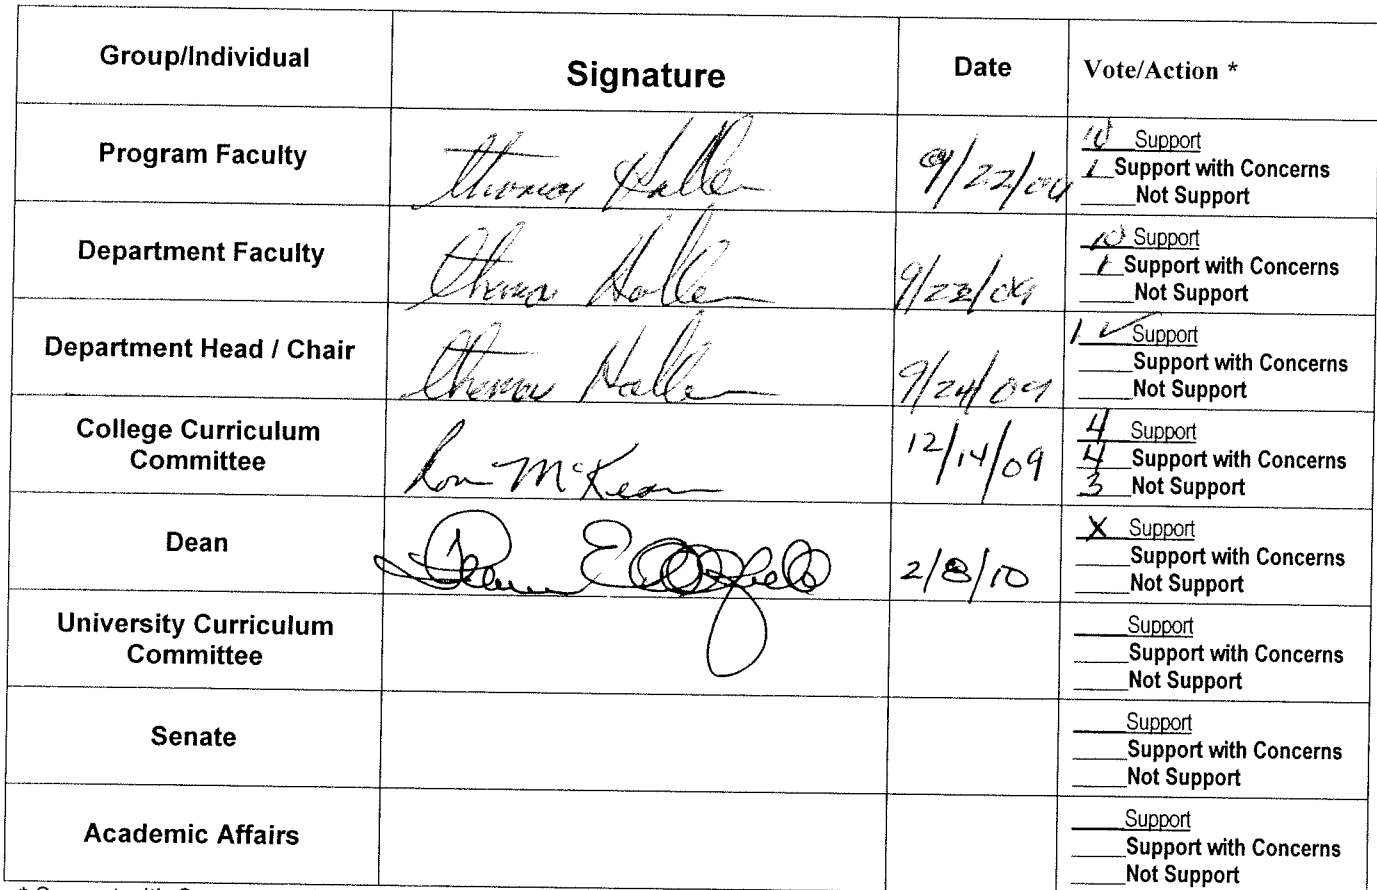 Group/Individual Signature Date Vote/Action *
Program Faculty Thomas Hollen 9/22/09 10 Support
1 Support with Concerns
____Not Support
Department Faculty Thomas Hollen 9/22/09 10 Support
1 Support with Concerns
____Not Support
Department Head / Chair Thomas Hollen 9/24/09 1 ✓ Support
____Support with Concerns
____Not Support
College Curriculum
Committee Ron McKean 12/14/09 4 Support
4 Support with Concerns
3 Not Support
Dean 2/8/10 X Support
____Support with Concerns
____Not Support
University Curriculum
Committee ____Support
____Support with Concerns
____Not Support
Senate ____Support
____Support with Concerns
____Not Support
Academic Affairs ____Support
____Support with Concerns
____Not Support